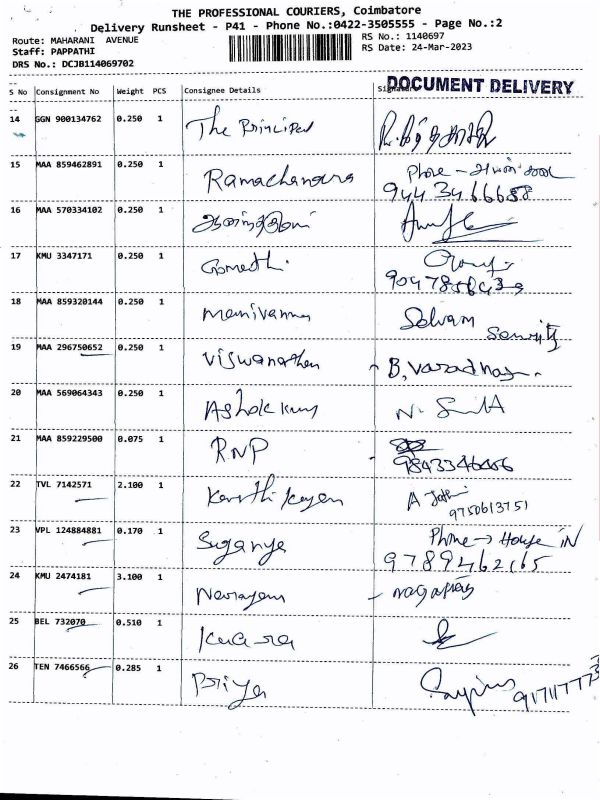 THE PROFESSIONAL COURIERS, Coimbatore
Delivery Runsheet - P41 - Phone No.:0422-3505555 - Page No.:2
Route: MAHARANI AVENUE RS No.: 1140697
Staff: PAPPATHI RS Date: 24-Mar-2023
DRS No.: DCJB114069702
DOCUMENT DELIVERY
S No Consignment No Weight PCS Consignee Details
14 GGN 900134762 0.250 1 The Principal
15 MAA 859462891 0.250 1 Ramachandra Phone -
9443466688
16 MAA 570334102 0.250 1
17 KMU 3347171 0.250 1 Gomathi
18 MAA 859320144 0.250 1 Manivannan Selvam
19 MAA 296750652 0.250 1 Viswanathan B. Varadhan
20 MAA 569064343 0.250 1 Ashok kumar
21 MAA 859229500 0.075 1 RNP
22 TVL 7142571 2.100 1 Karthikeyan A
9750613751
23 VPL 124884881 0.170 1 Suganya Phone → House iN
9789462165
24 KMU 2474181 3.100 1 Narayan
25 BEL 732070 0.510 1
26 TEN 7466566 0.285 1 Priya